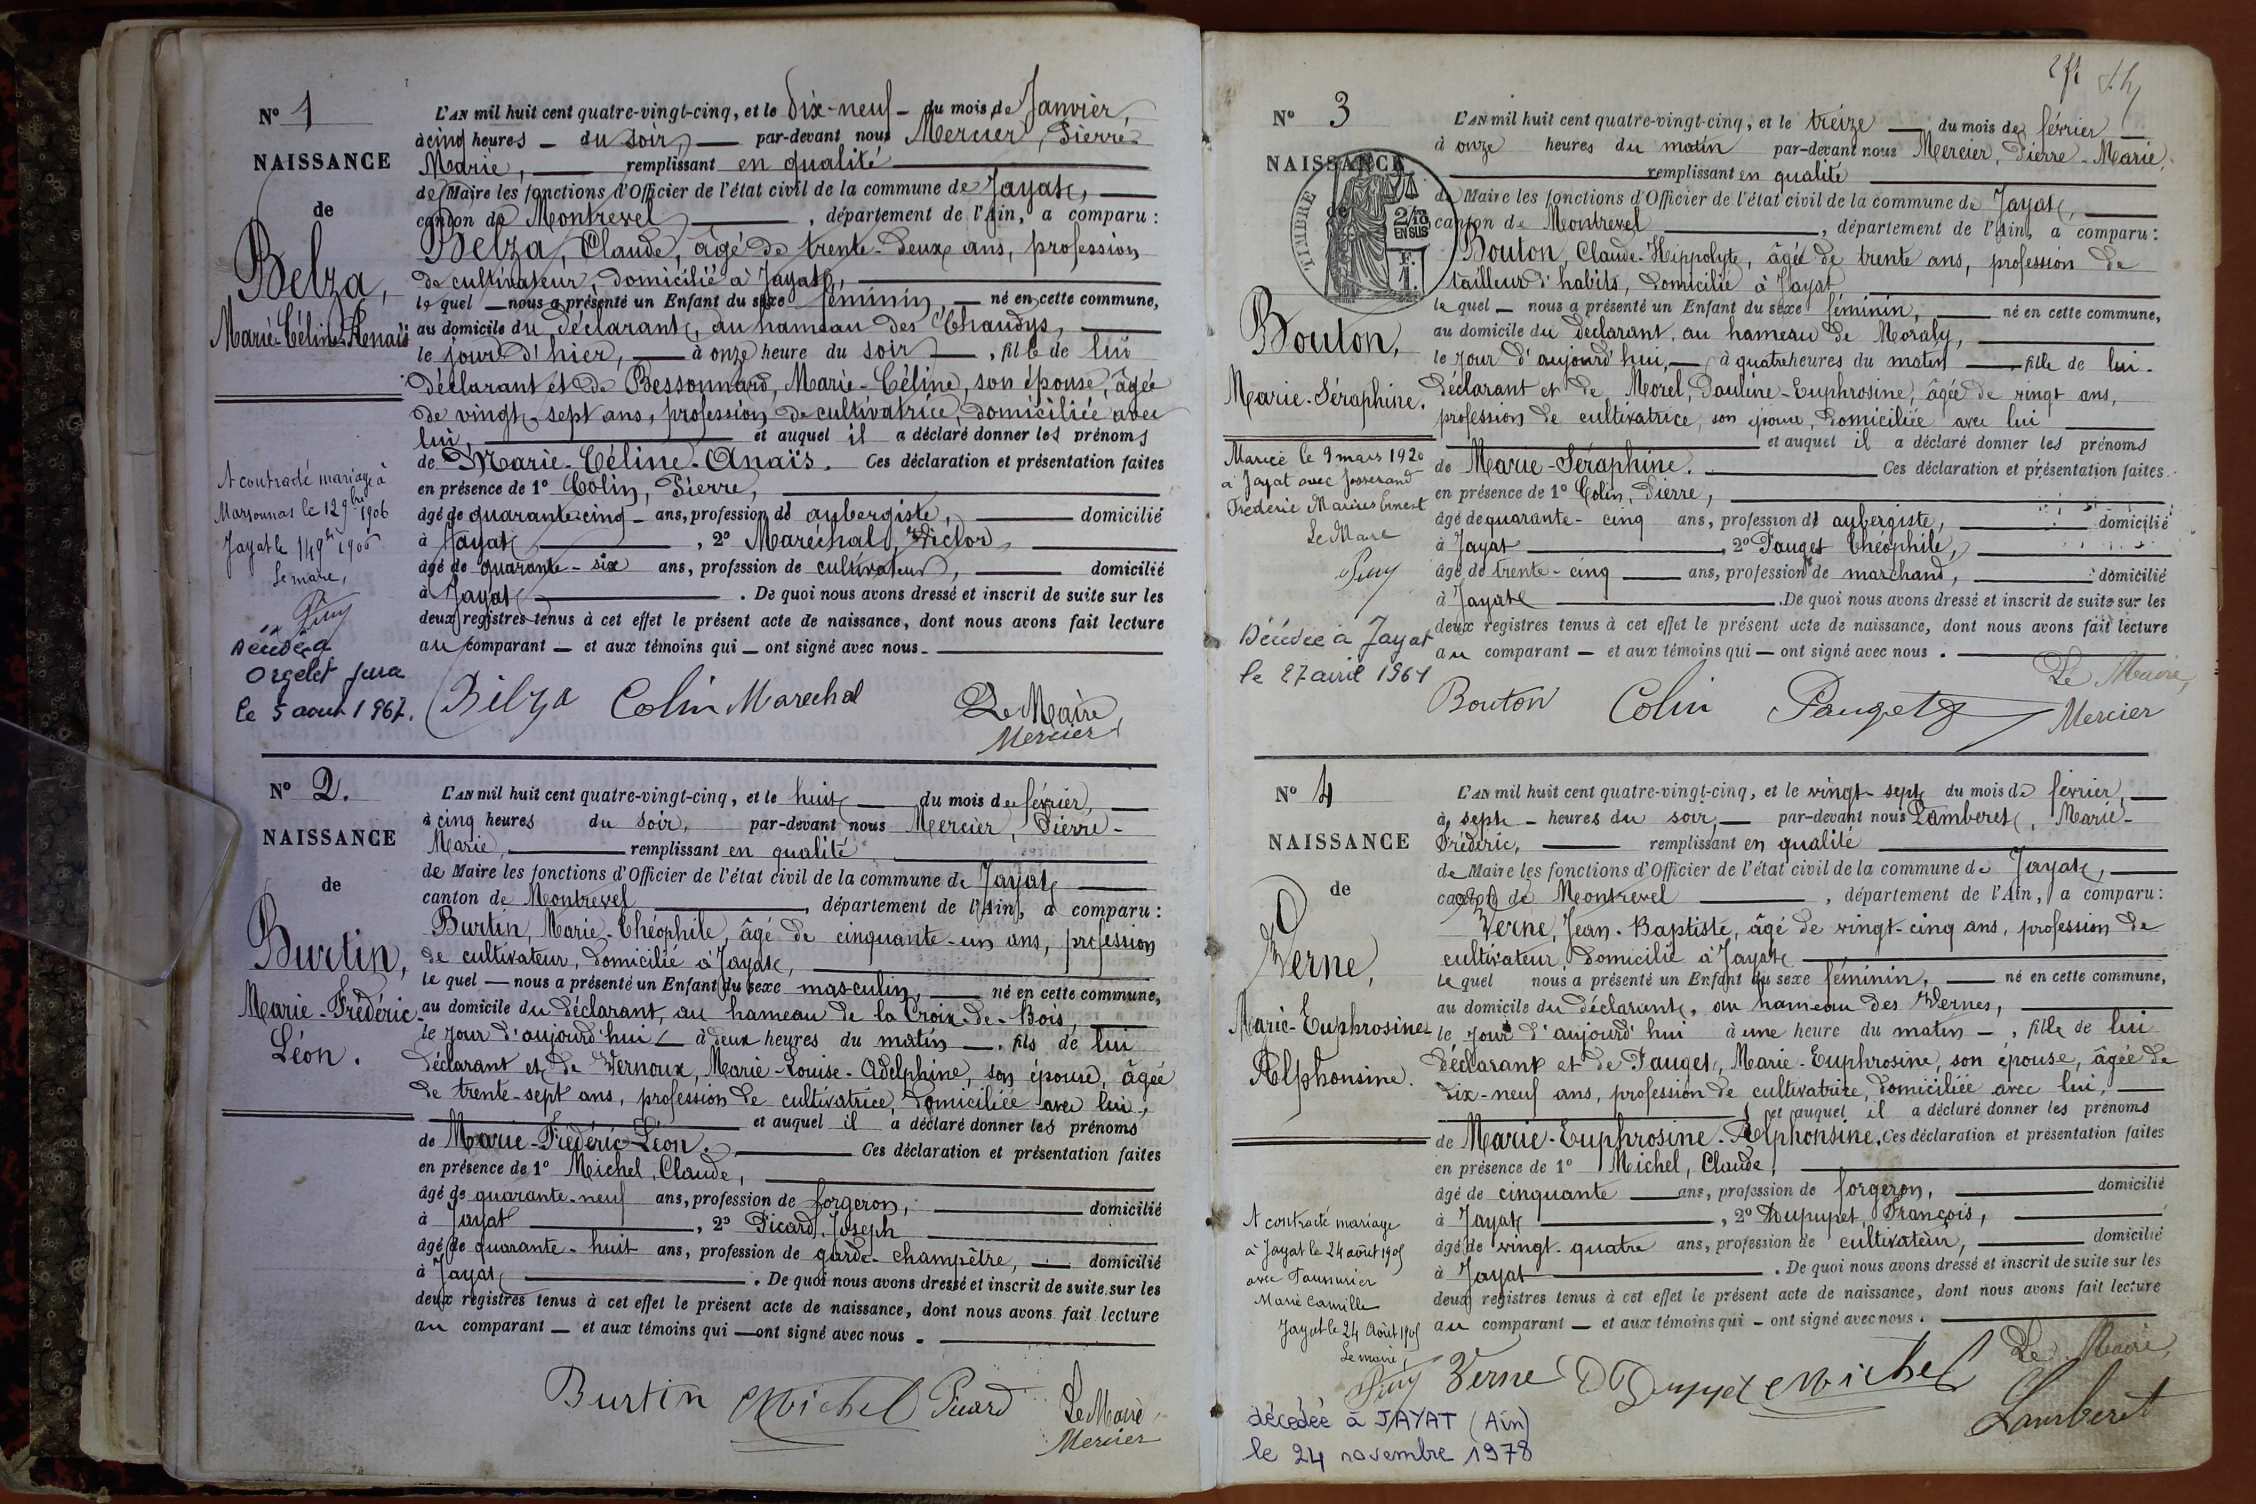 N° 1
NAISSANCE
de
Belza,
Marie-Céline-Anaïs
A contracté mariage à
Marsonnas le 12 9bre 1906
Jayat le 14 9bre 1906
Le maire,
Puy
Décédée à
Orgelet Jura
le 5 aout 1967.
L'AN mil huit cent quatre-vingt-cinq, et le dix-neuf du mois de Janvier,
à cinq heures du soir, par-devant nous Mercier, Pierre-
Marie, remplissant en qualité
de Maire les fonctions d'Officier de l'état civil de la commune de Jayat,
canton de Montrevel, département de l'Ain, a comparu :
Belza, Claude, âgé de trente-deux ans, profession
de cultivateur, domicilié à Jayat,
le quel nous a présenté un Enfant du sexe féminin, né en cette commune,
au domicile du déclarant, au hameau des Chaudys,
le jour d'hier, à onze heure du soir, fille de lui
déclarant et de Bessonnard, Marie-Céline, son épouse, âgée
de vingt-sept ans, profession de cultivatrice, domiciliée avec
lui, et auquel il a déclaré donner les prénoms
de Marie-Céline-Anaïs. Ces déclaration et présentation faites
en présence de 1° Colin, Pierre,
âgé de quarante-cinq ans, profession de aubergiste, domicilié
à Jayat, 2° Maréchal, Victor,
âgé de quarante-six ans, profession de cultivateur, domicilié
à Jayat. De quoi nous avons dressé et inscrit de suite sur les
deux registres tenus à cet effet le présent acte de naissance, dont nous avons fait lecture
au comparant et aux témoins qui ont signé avec nous.
Belza Colin Marechal Le Maire,
Mercier
N° 2.
NAISSANCE
de
Burtin,
Marie-Frédéric-
Léon.
L'AN mil huit cent quatre-vingt-cinq, et le huit du mois de février,
à cinq heures du soir, par-devant nous Mercier, Pierre-
Marie, remplissant en qualité
de Maire les fonctions d'Officier de l'état civil de la commune de Jayat
canton de Montrevel, département de l'Ain, a comparu :
Burtin, Marie-Théophile, âgé de cinquante-un ans, profession
de cultivateur, domicilié à Jayat,
le quel nous a présenté un Enfant du sexe masculin, né en cette commune,
au domicile du déclarant, au hameau de la Croix-de-Bois,
le jour d'aujourd'hui à deux heures du matin, fils de lui
déclarant et de Vernoux, Marie-Louise-Adelphine, son épouse, âgée
de trente-sept ans, profession de cultivatrice, domiciliée avec lui,
et auquel il a déclaré donner les prénoms
de Marie-Frédéric-Léon. Ces déclaration et présentation faites
en présence de 1° Michel, Claude,
âgé de quarante-neuf ans, profession de forgeron, domicilié
à Jayat, 2° Picard, Joseph
âgé de quarante-huit ans, profession de garde-champêtre, domicilié
à Jayat. De quoi nous avons dressé et inscrit de suite sur les
deux registres tenus à cet effet le présent acte de naissance, dont nous avons fait lecture
au comparant et aux témoins qui ont signé avec nous.
Burtin Michel Picard Le Maire,
Mercier
N° 3
NAISSANCE
de
TIMBRE
2/10
EN SUS
F.
1.
Bouton,
Marie-Séraphine.
Mariée le 9 mars 1920
à Jayat avec Josserand
Frédéric Marius Ernest
Le Maire
Puy
Décédée à Jayat
le 27 avril 1961
L'AN mil huit cent quatre-vingt-cinq, et le treize du mois de février
à onze heures du matin par-devant nous Mercier, Pierre-Marie,
remplissant en qualité
de Maire les fonctions d'Officier de l'état civil de la commune de Jayat,
canton de Montrevel, département de l'Ain, a comparu :
Bouton, Claude-Hippolyte, âgé de trente ans, profession de
tailleur d'habits, domicilié à Jayat
le quel nous a présenté un Enfant du sexe féminin, né en cette commune,
au domicile du déclarant, au hameau de Moraly,
le jour d'aujourd'hui, à quatre heures du matin fille de lui
déclarant et de Morel, Pauline-Euphrosine, âgée de vingt ans,
profession de cultivatrice, son épouse, domiciliée avec lui
et auquel il a déclaré donner les prénoms
de Marie-Séraphine. Ces déclaration et présentation faites
en présence de 1° Colin, Pierre,
âgé de quarante-cinq ans, profession de aubergiste, domicilié
à Jayat, 2° Pauget Théophile,
âgé de trente-cinq ans, profession de marchand, domicilié
à Jayat. De quoi nous avons dressé et inscrit de suite sur les
deux registres tenus à cet effet le présent acte de naissance, dont nous avons fait lecture
au comparant et aux témoins qui ont signé avec nous.
Bouton Colin Pauget Le Maire,
Mercier
N° 4
NAISSANCE
de
Verne,
Marie-Euphrosine-
Alphonsine.
A contracté mariage
à Jayat le 24 août 1905
avec
Marie Camille
Jayat le 24 Août 1905
Le maire,
Puy
décédée à JAYAT (Ain)
le 24 novembre 1978
L'AN mil huit cent quatre-vingt-cinq, et le vingt-sept du mois de février,
à sept heures du soir, par-devant nous Lamberet, Marie-
Frédéric, remplissant en qualité
de Maire les fonctions d'Officier de l'état civil de la commune de Jayat,
canton de Montrevel, département de l'Ain, a comparu :
Verne, Jean-Baptiste, âgé de vingt-cinq ans, profession de
cultivateur domicilié à Jayat
le quel nous a présenté un Enfant du sexe féminin, né en cette commune,
au domicile du déclarant, au hameau des Vernes,
le jour d'aujourd'hui à une heure du matin, fille de lui
déclarant et de Pauget, Marie-Euphrosine, son épouse, âgée de
dix-neuf ans, profession de cultivatrice, domiciliée avec lui,
et auquel il a déclaré donner les prénoms
de Marie-Euphrosine-Alphonsine. Ces déclaration et présentation faites
en présence de 1° Michel, Claude,
âgé de cinquante ans, profession de forgeron, domicilié
à Jayat, 2° Dupupet François,
âgé de vingt-quatre ans, profession de cultivateur, domicilié
à Jayat. De quoi nous avons dressé et inscrit de suite sur les
deux registres tenus à cet effet le présent acte de naissance, dont nous avons fait lecture
au comparant et aux témoins qui ont signé avec nous.
Verne Michel Le Maire,
Lamberet